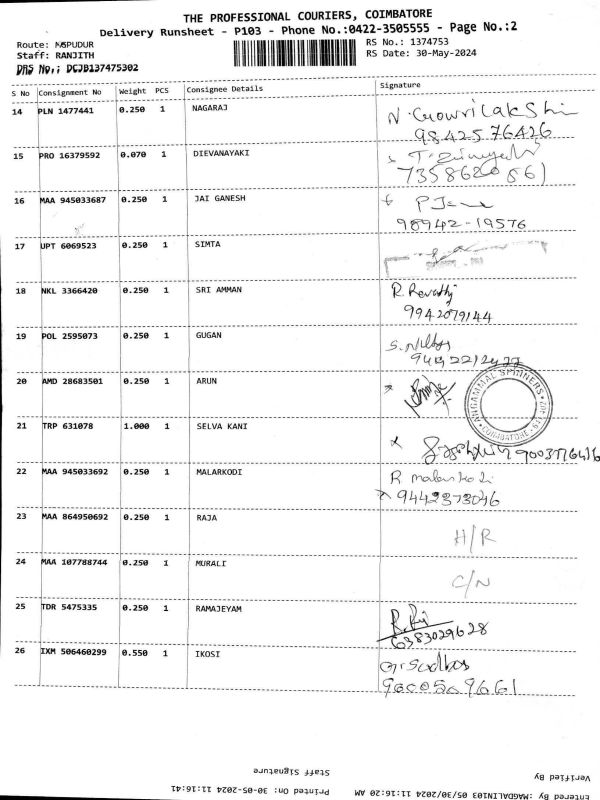 THE PROFESSIONAL COURIERS, COIMBATORE
Delivery Runsheet - P103 - Phone No.:0422-3505555 - Page No.:2
Route: MSPUDUR
RS No.: 1374753
Staff: RANJITH
RS Date: 30-May-2024
DRS No.: DCJB137475302
S No Consignment No Weight PCS Consignee Details Signature
14 PLN 1477441 0.250 1 NAGARAJ N. Gowri Lakshi
9842576426
15 PRO 16379592 0.070 1 DIEVANAYAKI
16 MAA 945033687 0.250 1 JAI GANESH
98942-19576
17 UPT 6069523 0.250 1 SIMTA
18 NKL 3366420 0.250 1 SRI AMMAN R Revathy
9942079144
19 POL 2595073 0.250 1 GUGAN
20 AMD 28683501 0.250 1 ARUN
ANGAMMAL SPINNERS
COIMBATORE
21 TRP 631078 1.000 1 SELVA KANI
22 MAA 945033692 0.250 1 MALARKODI R malarkodi
9442373046
23 MAA 864950692 0.250 1 RAJA H/R
24 MAA 107788744 0.250 1 MURALI C/N
25 TDR 5475335 0.250 1 RAMAJEYAM
6383029628
26 IXM 506460299 0.550 1 IKOSI
Staff Signature
Verified By
Printed On: 30-05-2024 11:16:41
Entered By: MAGDALIN103 05/30/2024 11:16:20 AM